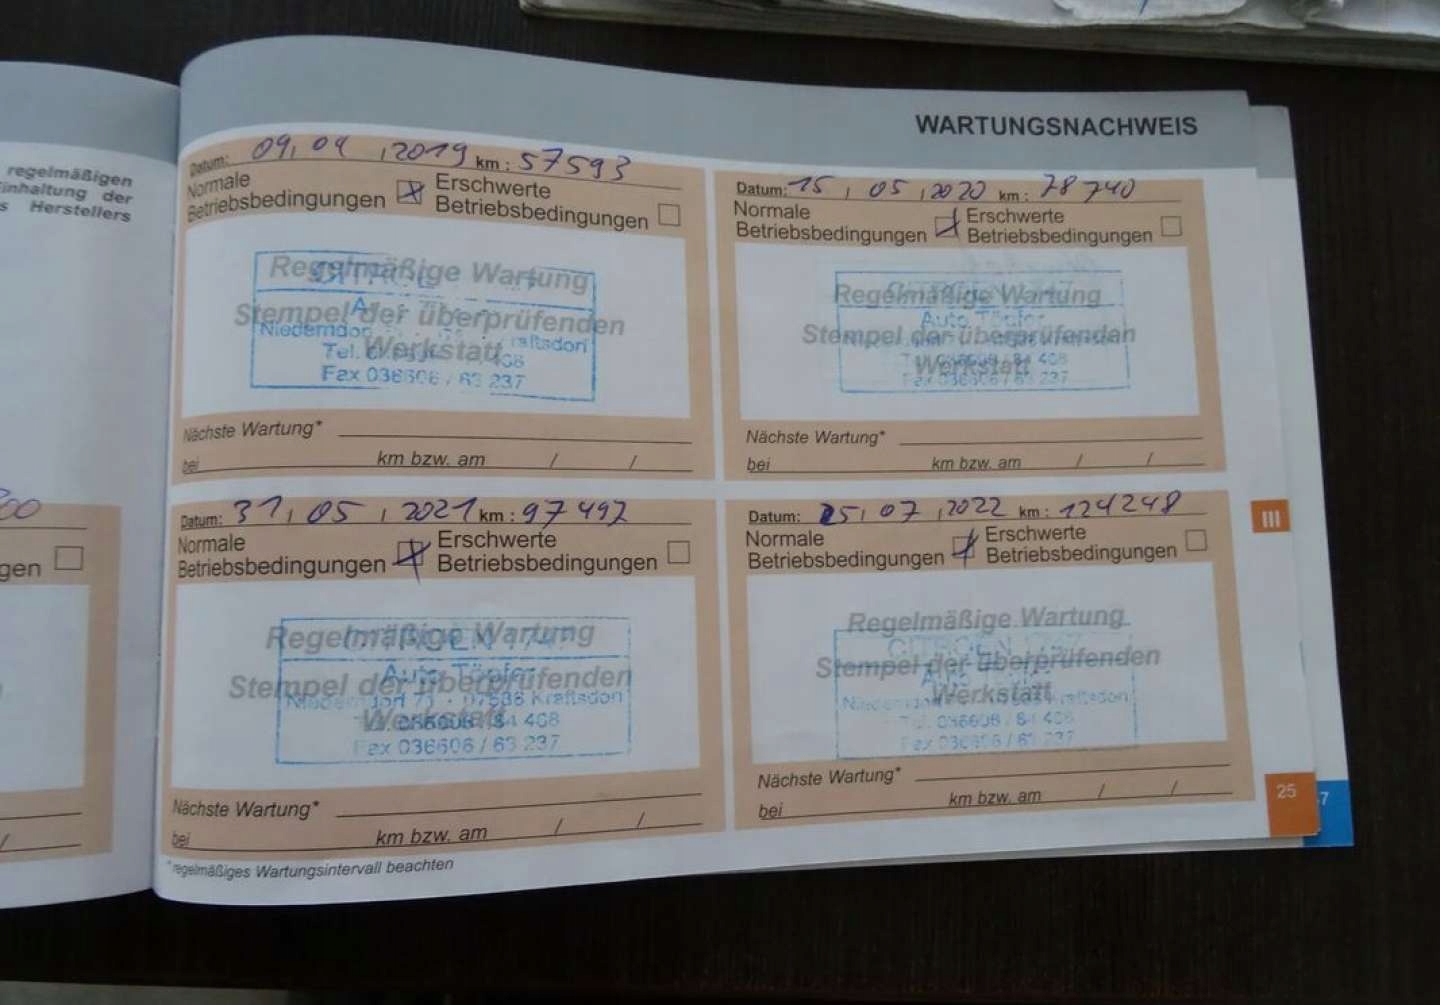 WARTUNGSNACHWEIS
regelmäßigen
Einhaltung der
s Herstellers
Datum: 09, 04, 2019 km: 57593
Normale
Betriebsbedingungen
Erschwerte
Betriebsbedingungen
Regelmäßige Wartung
Stempel der überprüfenden
Werkstatt
Niederndor
raftsdorf
Tel.
Fax 036606 / 63 237
Nächste Wartung*
bei km bzw. am / /
Datum: 15, 05, 2020 km: 78740
Normale
Betriebsbedingungen
Erschwerte
Betriebsbedingungen
Regelmäßige Wartung
Auto Töpfer
Stempel der überprüfenden
Werkstatt
036606 / 84 408
Fax 036606 / 63 237
Nächste Wartung*
bei km bzw. am / /
gen
Datum: 31, 05, 2021 km: 97497
Normale
Betriebsbedingungen
Erschwerte
Betriebsbedingungen
CITROEN
Regelmäßige Wartung
Auto Töpfer
Stempel der überprüfenden
Niederndorf 71 · 07586 Kraftsdorf
Werkstatt
036606 / 84 408
Fax 036606 / 63 237
Nächste Wartung*
bei km bzw. am / /
Datum: 25, 07, 2022 km: 124248
Normale
Betriebsbedingungen
Erschwerte
Betriebsbedingungen
Regelmäßige Wartung
CITROEN
Stempel der überprüfenden
Werkstatt
Kraftsdorf
Tel. 036606 / 84 408
Fax 036606 / 63 237
Nächste Wartung*
bei km bzw. am / /
*regelmäßiges Wartungsintervall beachten
III
25
7